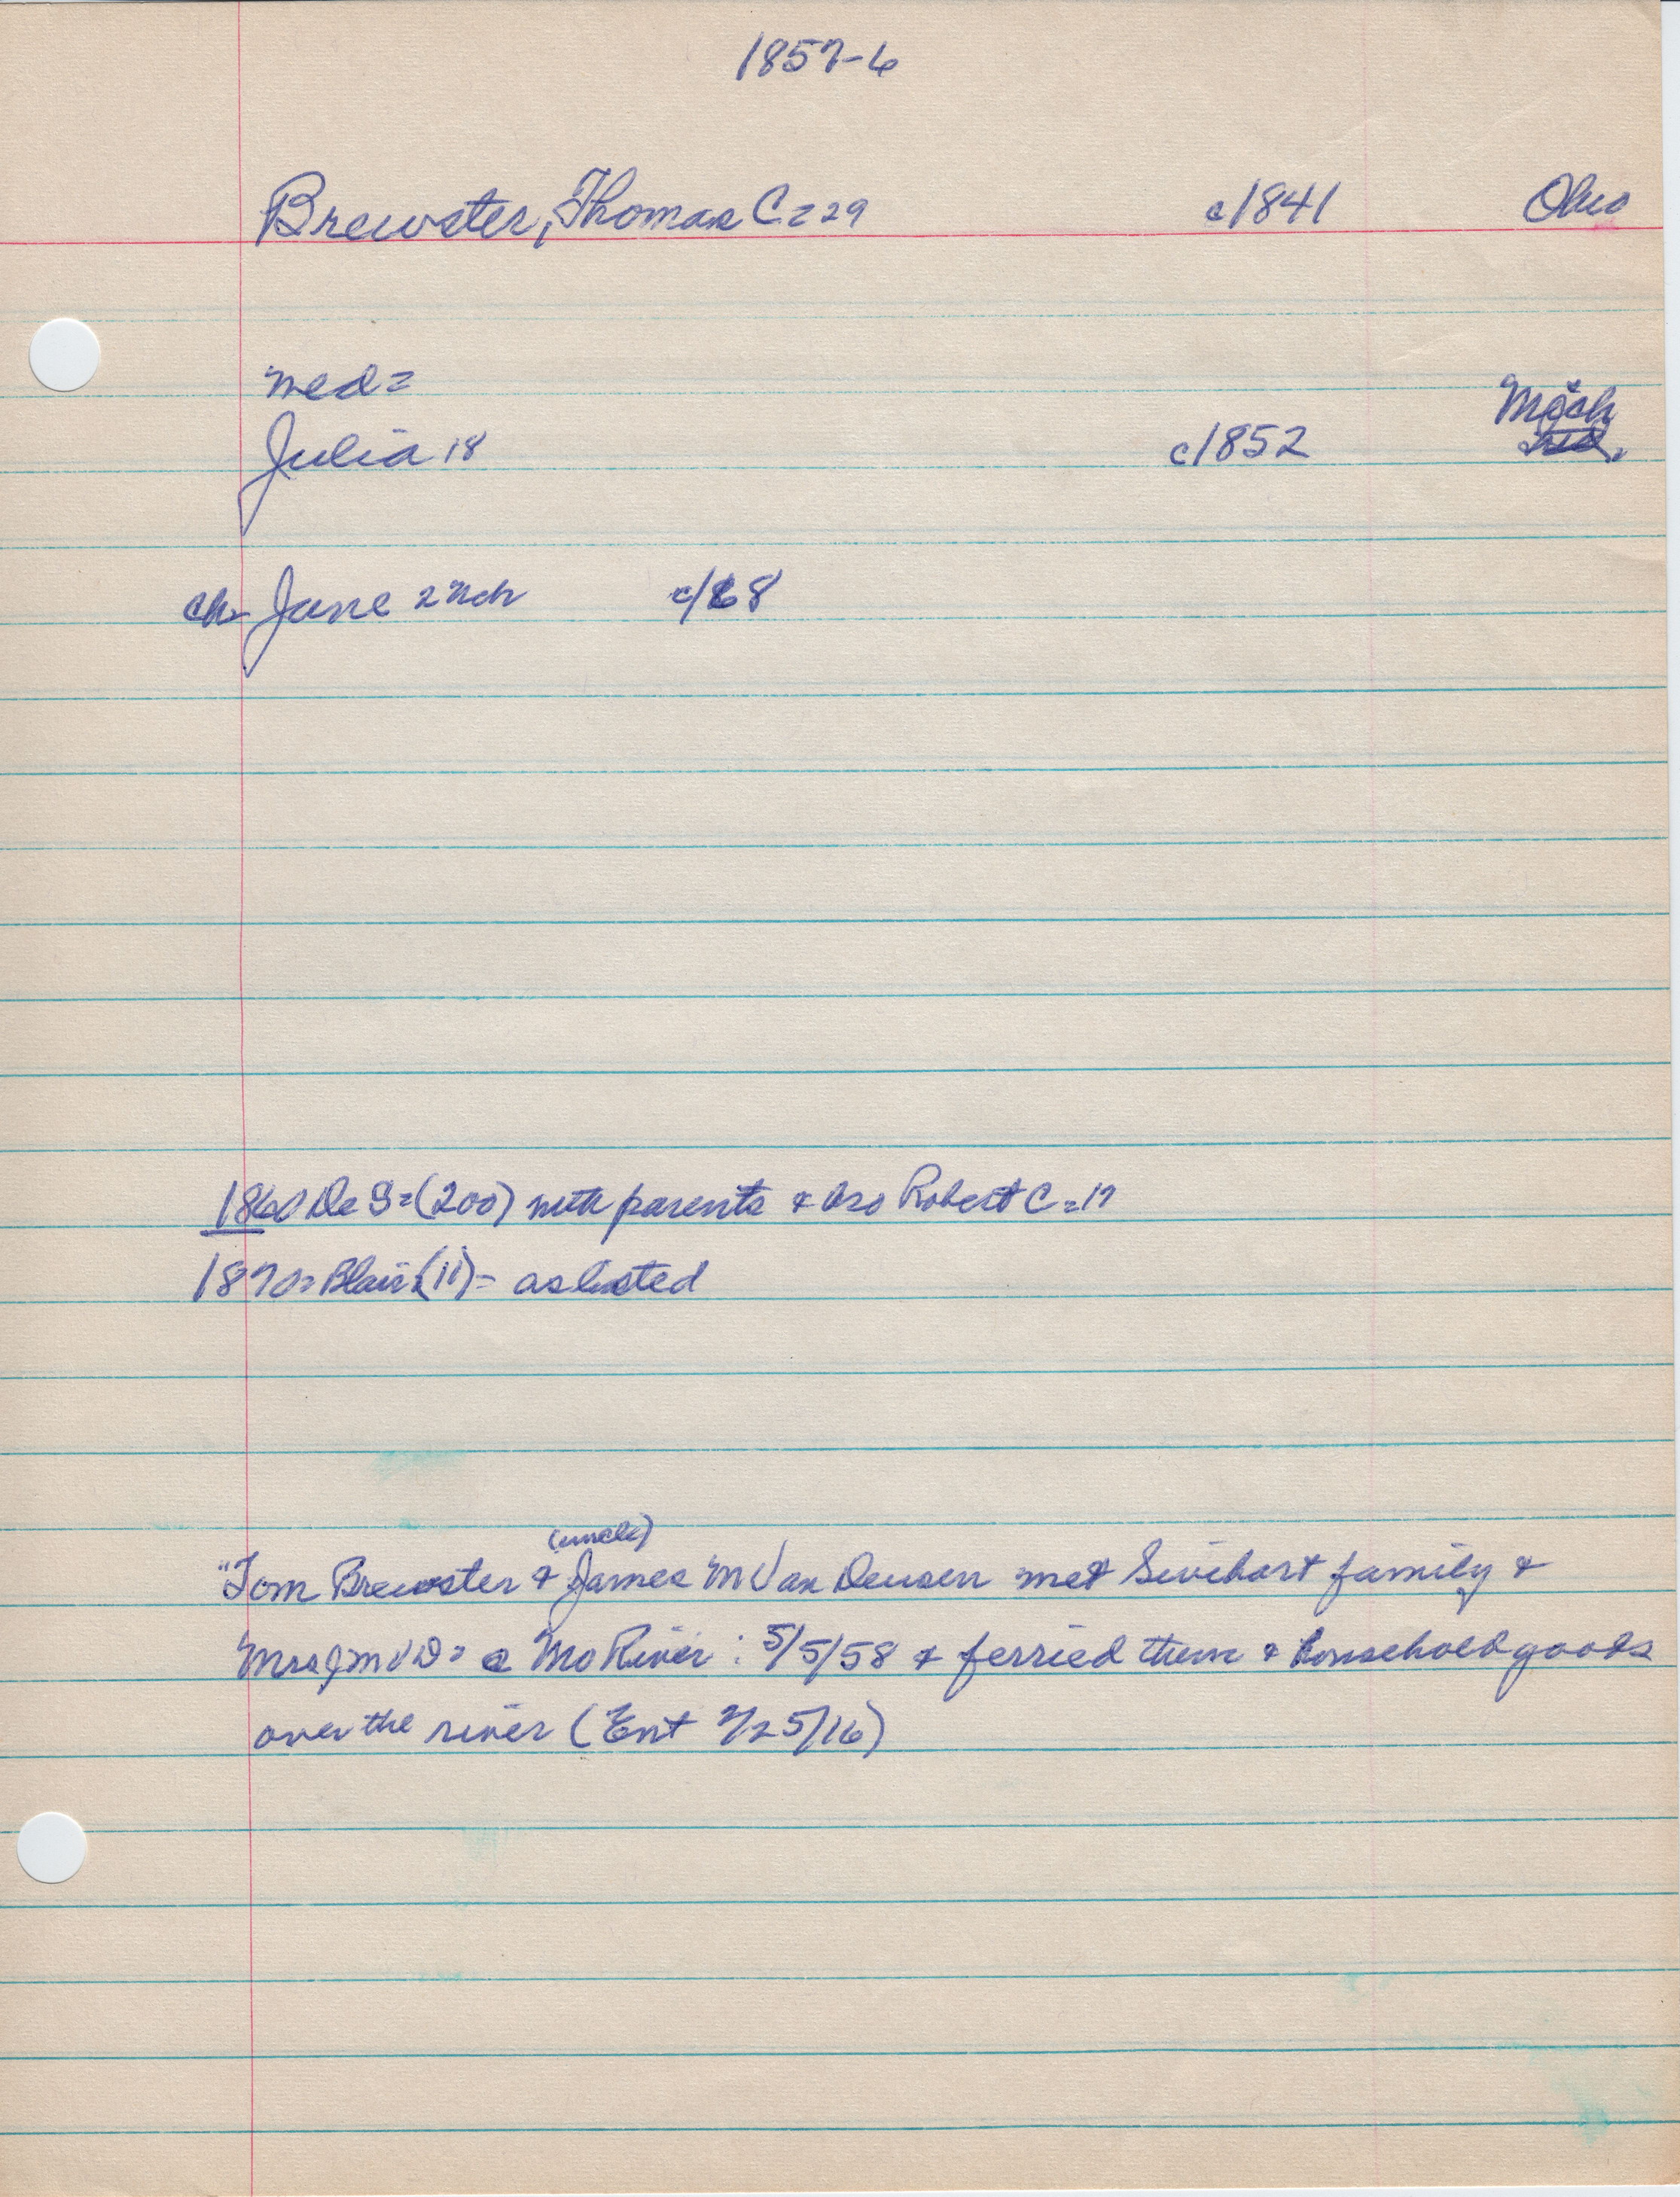 1857-6
Brewster, Thomas C = 29 c1841 Ohio
med = Mich
Julia 18 c1852
ch- Jane 2 Neb c/68
1860 De S = (200) with parents & bro Robert C = 17
1870 = Blair (11) = as listed
(uncle)
"Tom Brewster & James M Van Deusen met Swihart family &
Mrs JMVD = @ Mo River : 5/5/58 & ferried them & household goods
over the river (Ent 2/25/16)